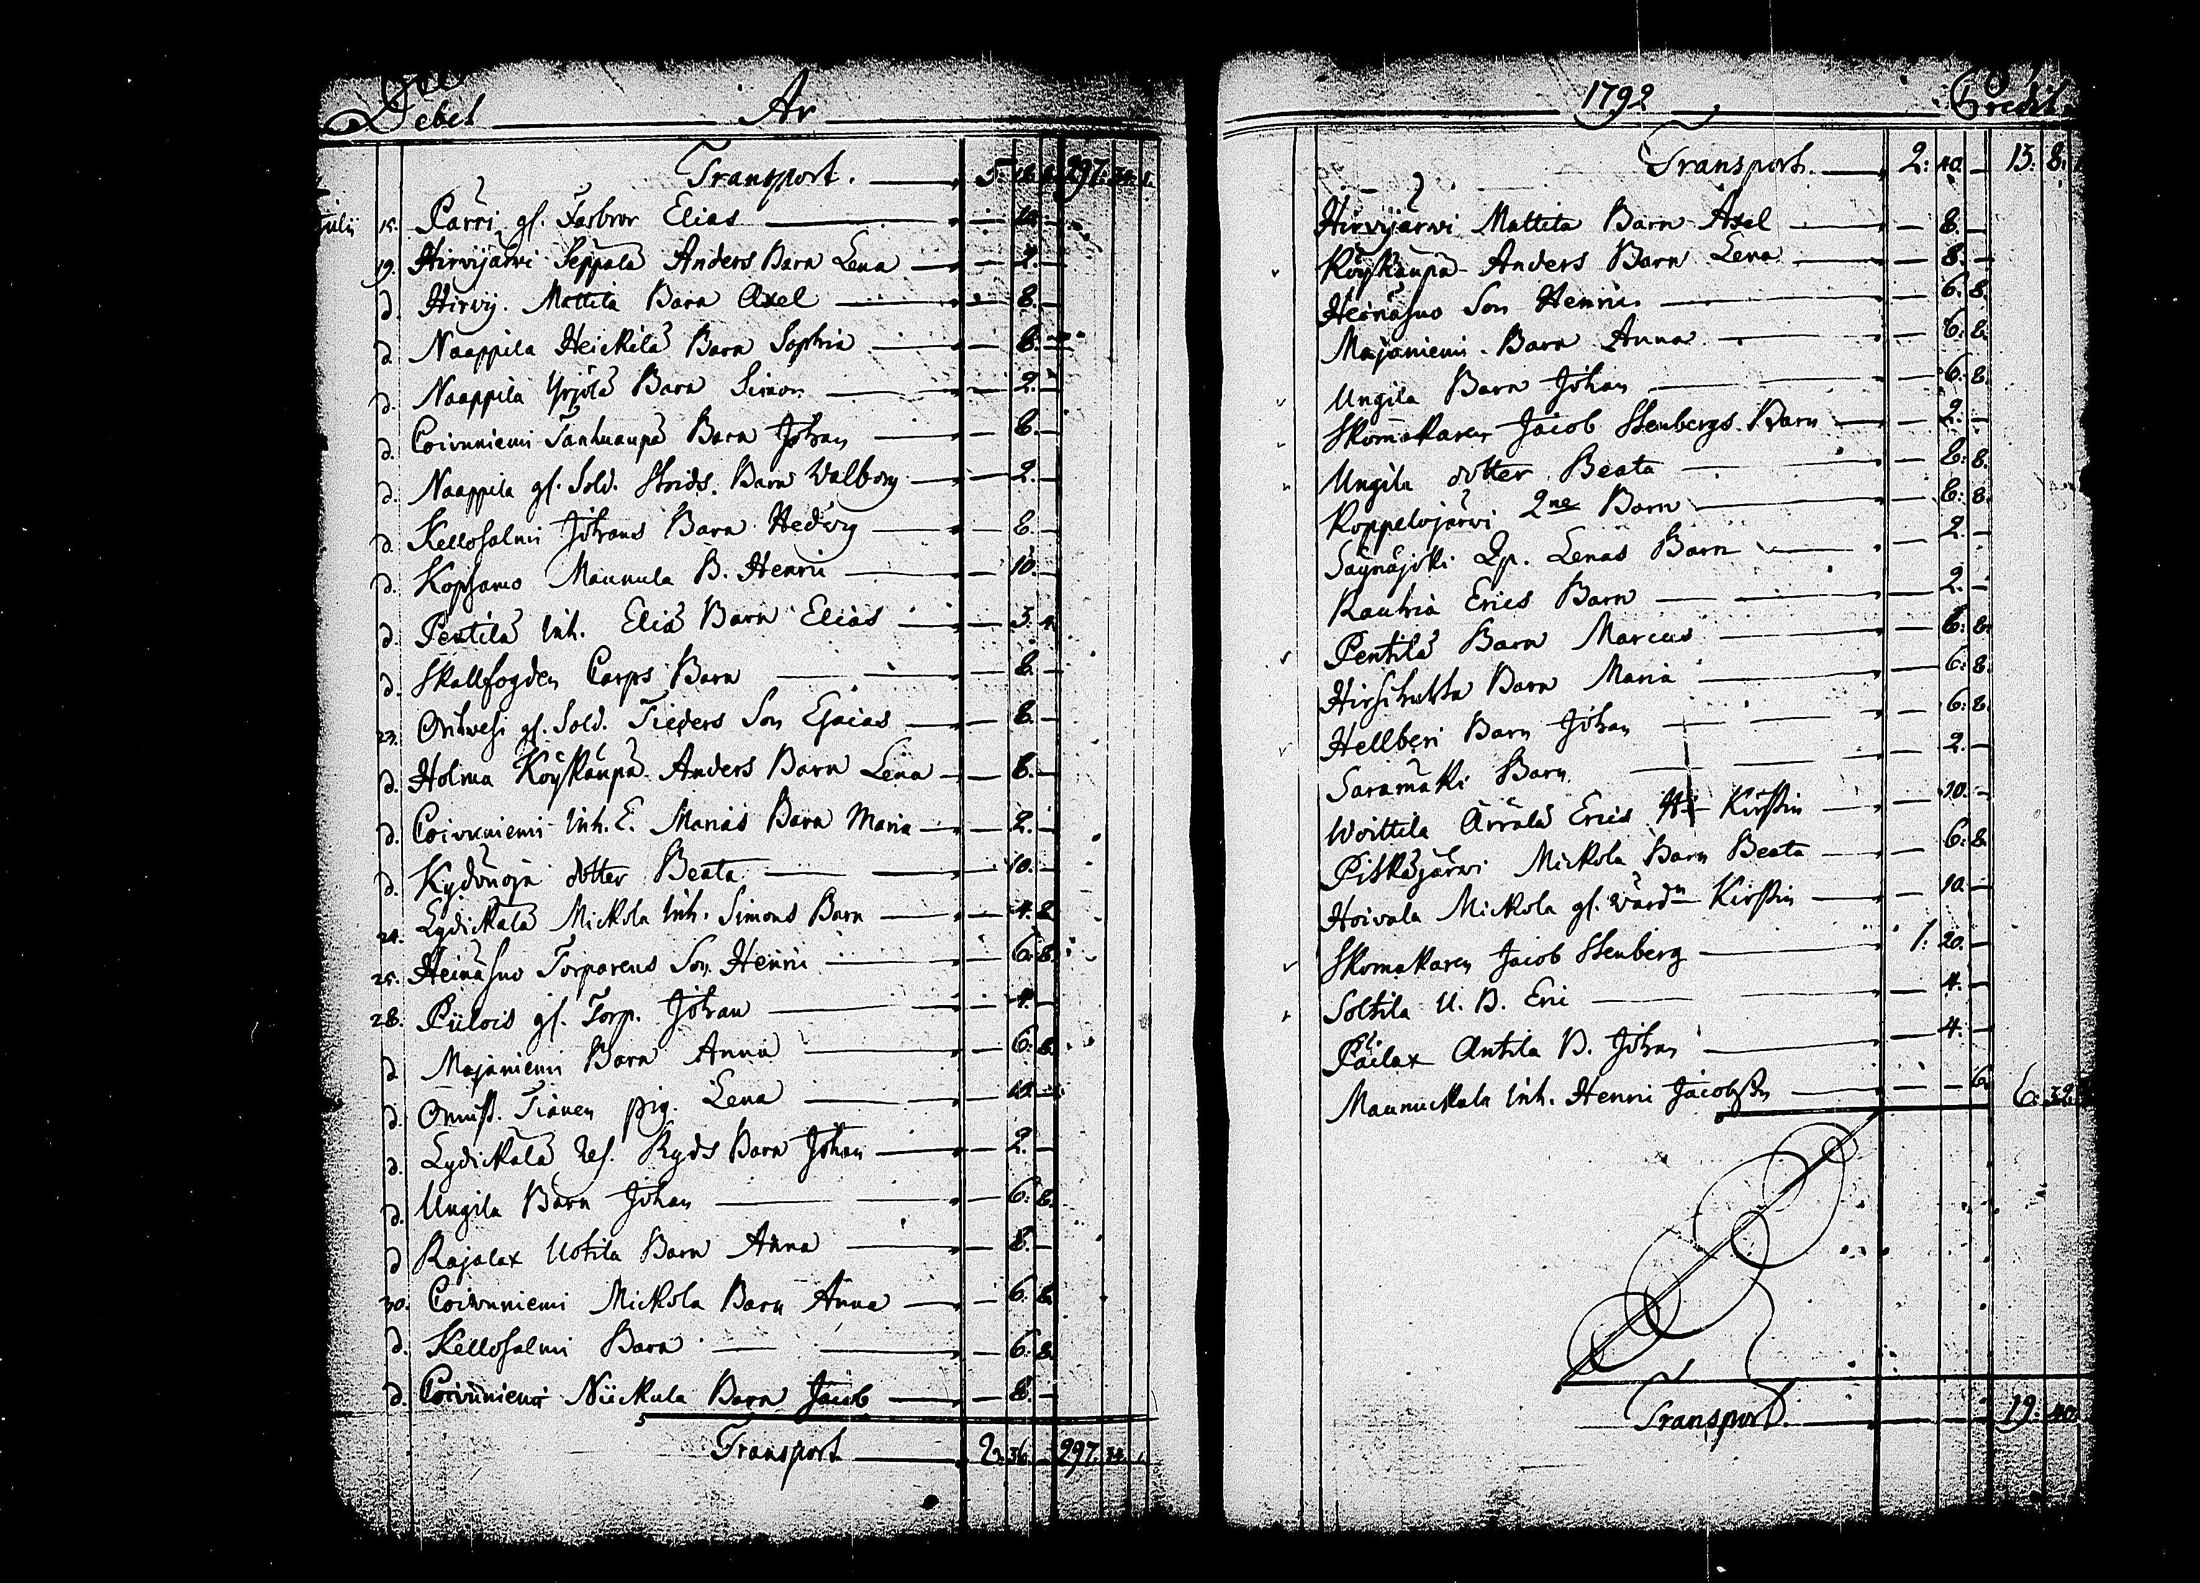 Debet År
Transport. 5. 18. 8. 297. 34. 1.
Julii 15. Pärri gl. Farbror Elias — 10. —
19. Hirvijärvi Seppälä Anders Barn Lena — 2. —
d. Hirvij. Mattila Barn Axel — 8. —
d. Naappila Heickilä Barn Sophia — 8. —
d. Naappila Yrjölä Barn Simon — 2. —
d. Coivuniemi Tanhuanpä Barn Johan — 8. —
d. Naappila gl. Sold. Strids. Barn Walborg — 2. —
d. Kellosalmi Johans Barn Hedvig — 8. —
d. Kophamo Maunula B. Henric — 10. —
d. Pentilä Inh. Eliæ Barn Elias — 5. 4.
d. Skallfogden Carps Barn — 8. —
23. Orihvesi gl. Sold. Tieders Son Esaias — 8. —
d. Holma Köyskänpä Anders Barn Lena — 8. —
d. Coivuniemi Inh. E. Marias Barn Maria — 2. —
d. Kydönoja dotter Beata — 10. —
24. Lydickälä Mickola Inh. Simons Barn — 4. 2.
25. Heinäsuo Torparens Son Henric — 6. 8.
28. Piilois gl. Torp. Johan — 4. —
d. Majaniemi Barn Anna — 6. 8.
d. Onnist. Tianen pig. Lena — 10. —
d. Lydickälä Ref. Ryds Barn Johan — 2. —
d. Ungila Barn Johan — 6. 8.
d. Rajalax Uotila Barn Anna — 8. —
30. Coivuniemi Mickola Barn Anna — 6. 8.
d. Kellosalmi Barn — 6. 8.
d. Coivuniemi Niickula Barn Jacob — 8. —
Transport 2. 36. — 297. 34. 1.
1792 Credit.
Transport. 2. 40. — 15. 8.
Hirvijärvi Mattila Barn Axel — 8. —
Köyskänpä Anders Barn Lena — 8. —
Heinäsuo Son Henric. — 6. 8.
Majaniemi Barn Anna — 6. 8.
Ungila Barn Johan — 6. 8.
Skomakaren Jacob Stenbergs Barn — 2. —
Ungila dotter Beata — 6. 8.
Koppelojärvi 2ne Barn — 6. 8.
Säynäjoki Qp. Lenas Barn — 2. —
Rauhia Erics Barn — 2. —
Pentilä Barn Marcus — 6. 8.
Hirsihuhta Barn Maria — 6. 8.
Hellberi Barn Johan — 6. 8.
Saramäki Barn — 2. —
Woittila Ärrälä Erics H. Kirstin — 10. —
Pitkäjärvi Mickola Barn Beata — 6. 8.
Hoivala Mickola gl. värdn Kirstin — 10. —
Skomakaren Jacob Stenberg 1. 20. —
Soltila U. B. Eric — 4. —
Päilax Antila D. Johan — 4. —
Maunuckala Inh. Henric Jacobss. — — 6. 6. 32.
Transport. 19. 40.